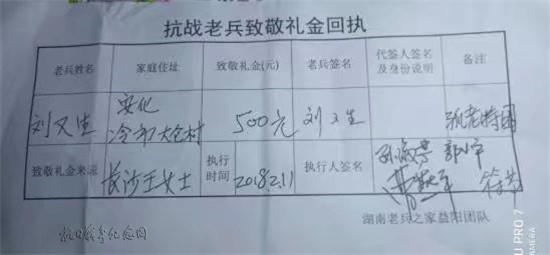 抗战老兵致敬礼金回执
老兵姓名 家庭住址 致敬礼金(元) 老兵签名 代签人签名及身份说明 备注
刘又生 安化冷市大仓村 500元 刘又生 孤老特困
致敬礼金来源 长沙王女士 执行时间 2018.2.11 执行人签名
湖南老兵之家益阳团队
抗日战争纪念网
U PRO 7
CAMERA